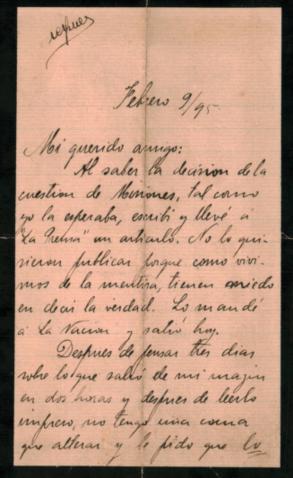 Febrero 9/95
Mi querido amigo:
Al saber la decision de la
cuestion de Misiones, tal como
yo la esperaba, escribi y llevé á
"La Prensa" un articulo. No lo qui-
sieron publicar porque como vivi-
mos de la mentira, tienen miedo
en decir la verdad. Lo mandé
á La Nacion y salió hoy.
Despues de pensar tres dias
sobre lo que salió de mi magin
en dos horas y despues de leerlo
impreso, no tengo una coma
que alterar y le pido que lo